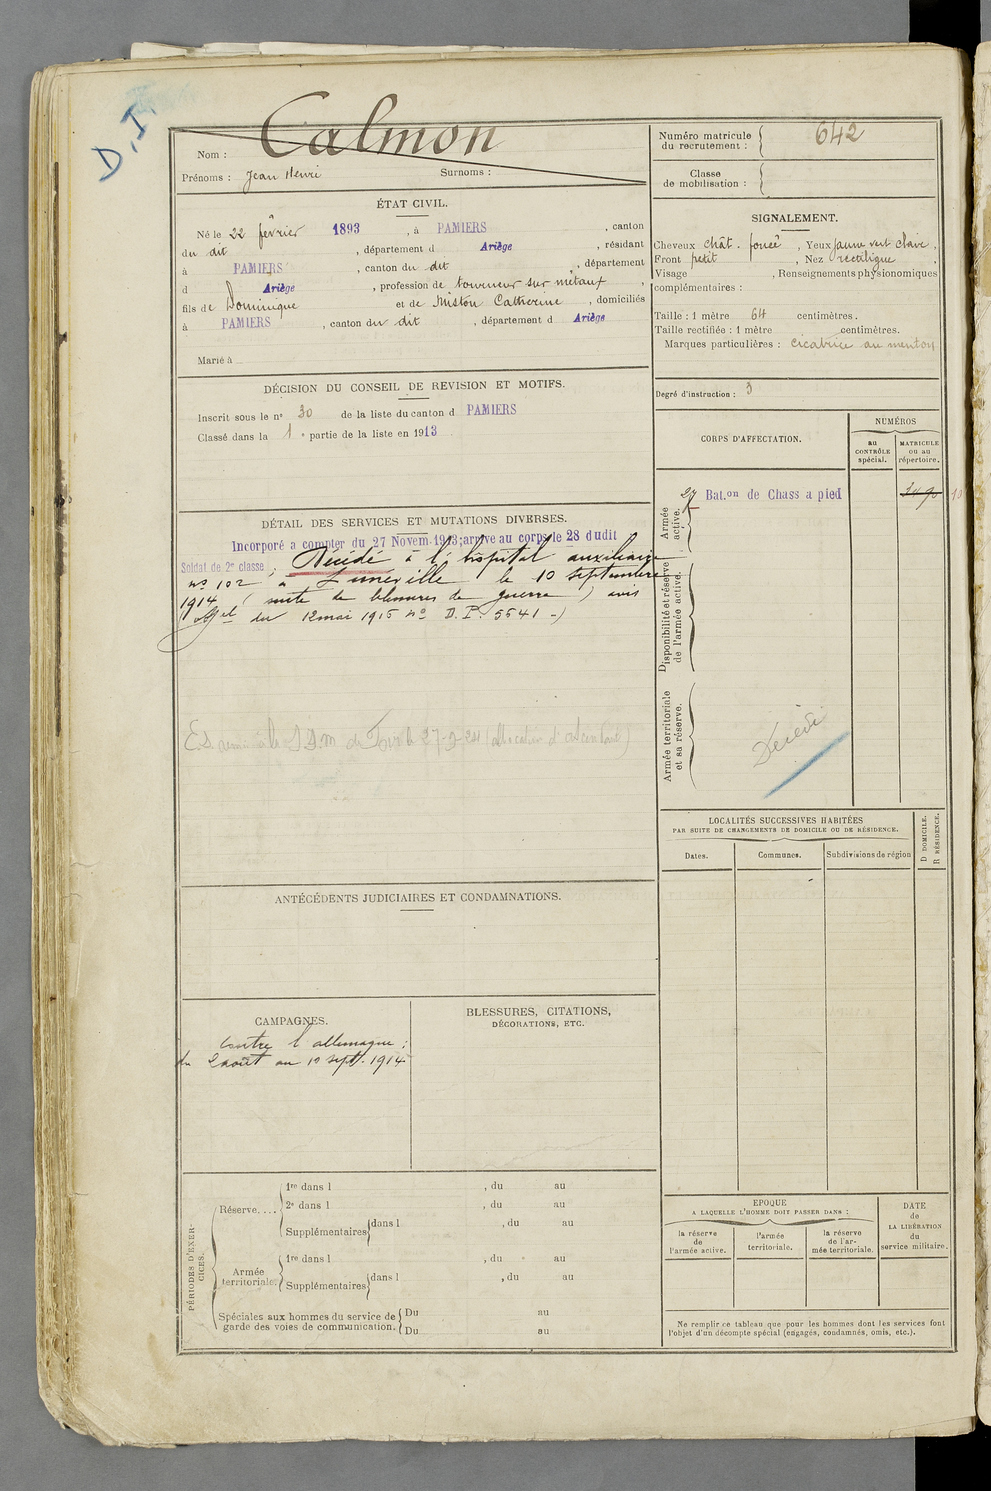 D.I.
Calmon
Nom :
Prénoms : Jean Henri Surnoms :
Numéro matricule
du recrutement : 642
Classe
de mobilisation :
ÉTAT CIVIL.
Né le 22 février 1893, à PAMIERS, canton
du dit, département d Ariège, résidant
à PAMIERS, canton du dit, département
d Ariège, profession de tourneur sur métaux,
fils de Dominique et de Miston Catherine, domiciliés
à PAMIERS, canton du dit, département d Ariège
Marié à
SIGNALEMENT.
Cheveux chât. foncé, Yeux jaune vert clair,
Front petit, Nez rectiligne,
Visage , Renseignements physionomiques
complémentaires :
Taille : 1 mètre 64 centimètres.
Taille rectifiée : 1 mètre centimètres.
Marques particulières : cicatrice au menton
Degré d'instruction : 3
DÉCISION DU CONSEIL DE REVISION ET MOTIFS.
Inscrit sous le nº 30 de la liste du canton d PAMIERS
Classé dans la 1e partie de la liste en 1913
CORPS D'AFFECTATION.
NUMÉROS
au
CONTRÔLE
spécial.
MATRICULE
ou au
répertoire.
Armée
active.
27 Bat.on de Chass a pied
Disponibilité et réserve
de l'armée active.
Armée territoriale
et sa réserve.
Décédé
DÉTAIL DES SERVICES ET MUTATIONS DIVERSES.
Incorporé a compter du 27 Novem. 1913; arrive au corps le 28 dudit
Soldat de 2e classe. Décédé à l'hôpital auxiliaire
nº 102 à Lunéville le 10 septembre
1914 (suite de blessures de guerre) avis
off.el du 12 mai 1915 nº D.P. 5541 -)
LOCALITÉS SUCCESSIVES HABITÉES
PAR SUITE DE CHANGEMENTS DE DOMICILE OU DE RÉSIDENCE.
D DOMICILE.
R RÉSIDENCE.
Dates.
Communes.
Subdivisions de région
ANTÉCÉDENTS JUDICIAIRES ET CONDAMNATIONS.
CAMPAGNES.
Contre l'allemagne :
du 2 août au 10 sept. 1914
BLESSURES, CITATIONS,
DÉCORATIONS, ETC.
PÉRIODES D'EXER-
CICES.
Réserve....
1re dans l , du au
2e dans l , du au
Supplémentaires dans l , du au
Armée
territoriale.
1re dans l , du au
Supplémentaires dans l , du au
Spéciales aux hommes du service de
garde des voies de communication.
Du au
Du au
EPOQUE
A LAQUELLE L'HOMME DOIT PASSER DANS :
la réserve
de
l'armée active.
l'armée
territoriale.
la réserve
de l'ar-
mée territoriale.
DATE
de
LA LIBÉRATION
du
service militaire.
Ne remplir ce tableau que pour les hommes dont les services font
l'objet d'un décompte spécial (engagés, condamnés, omis, etc.).